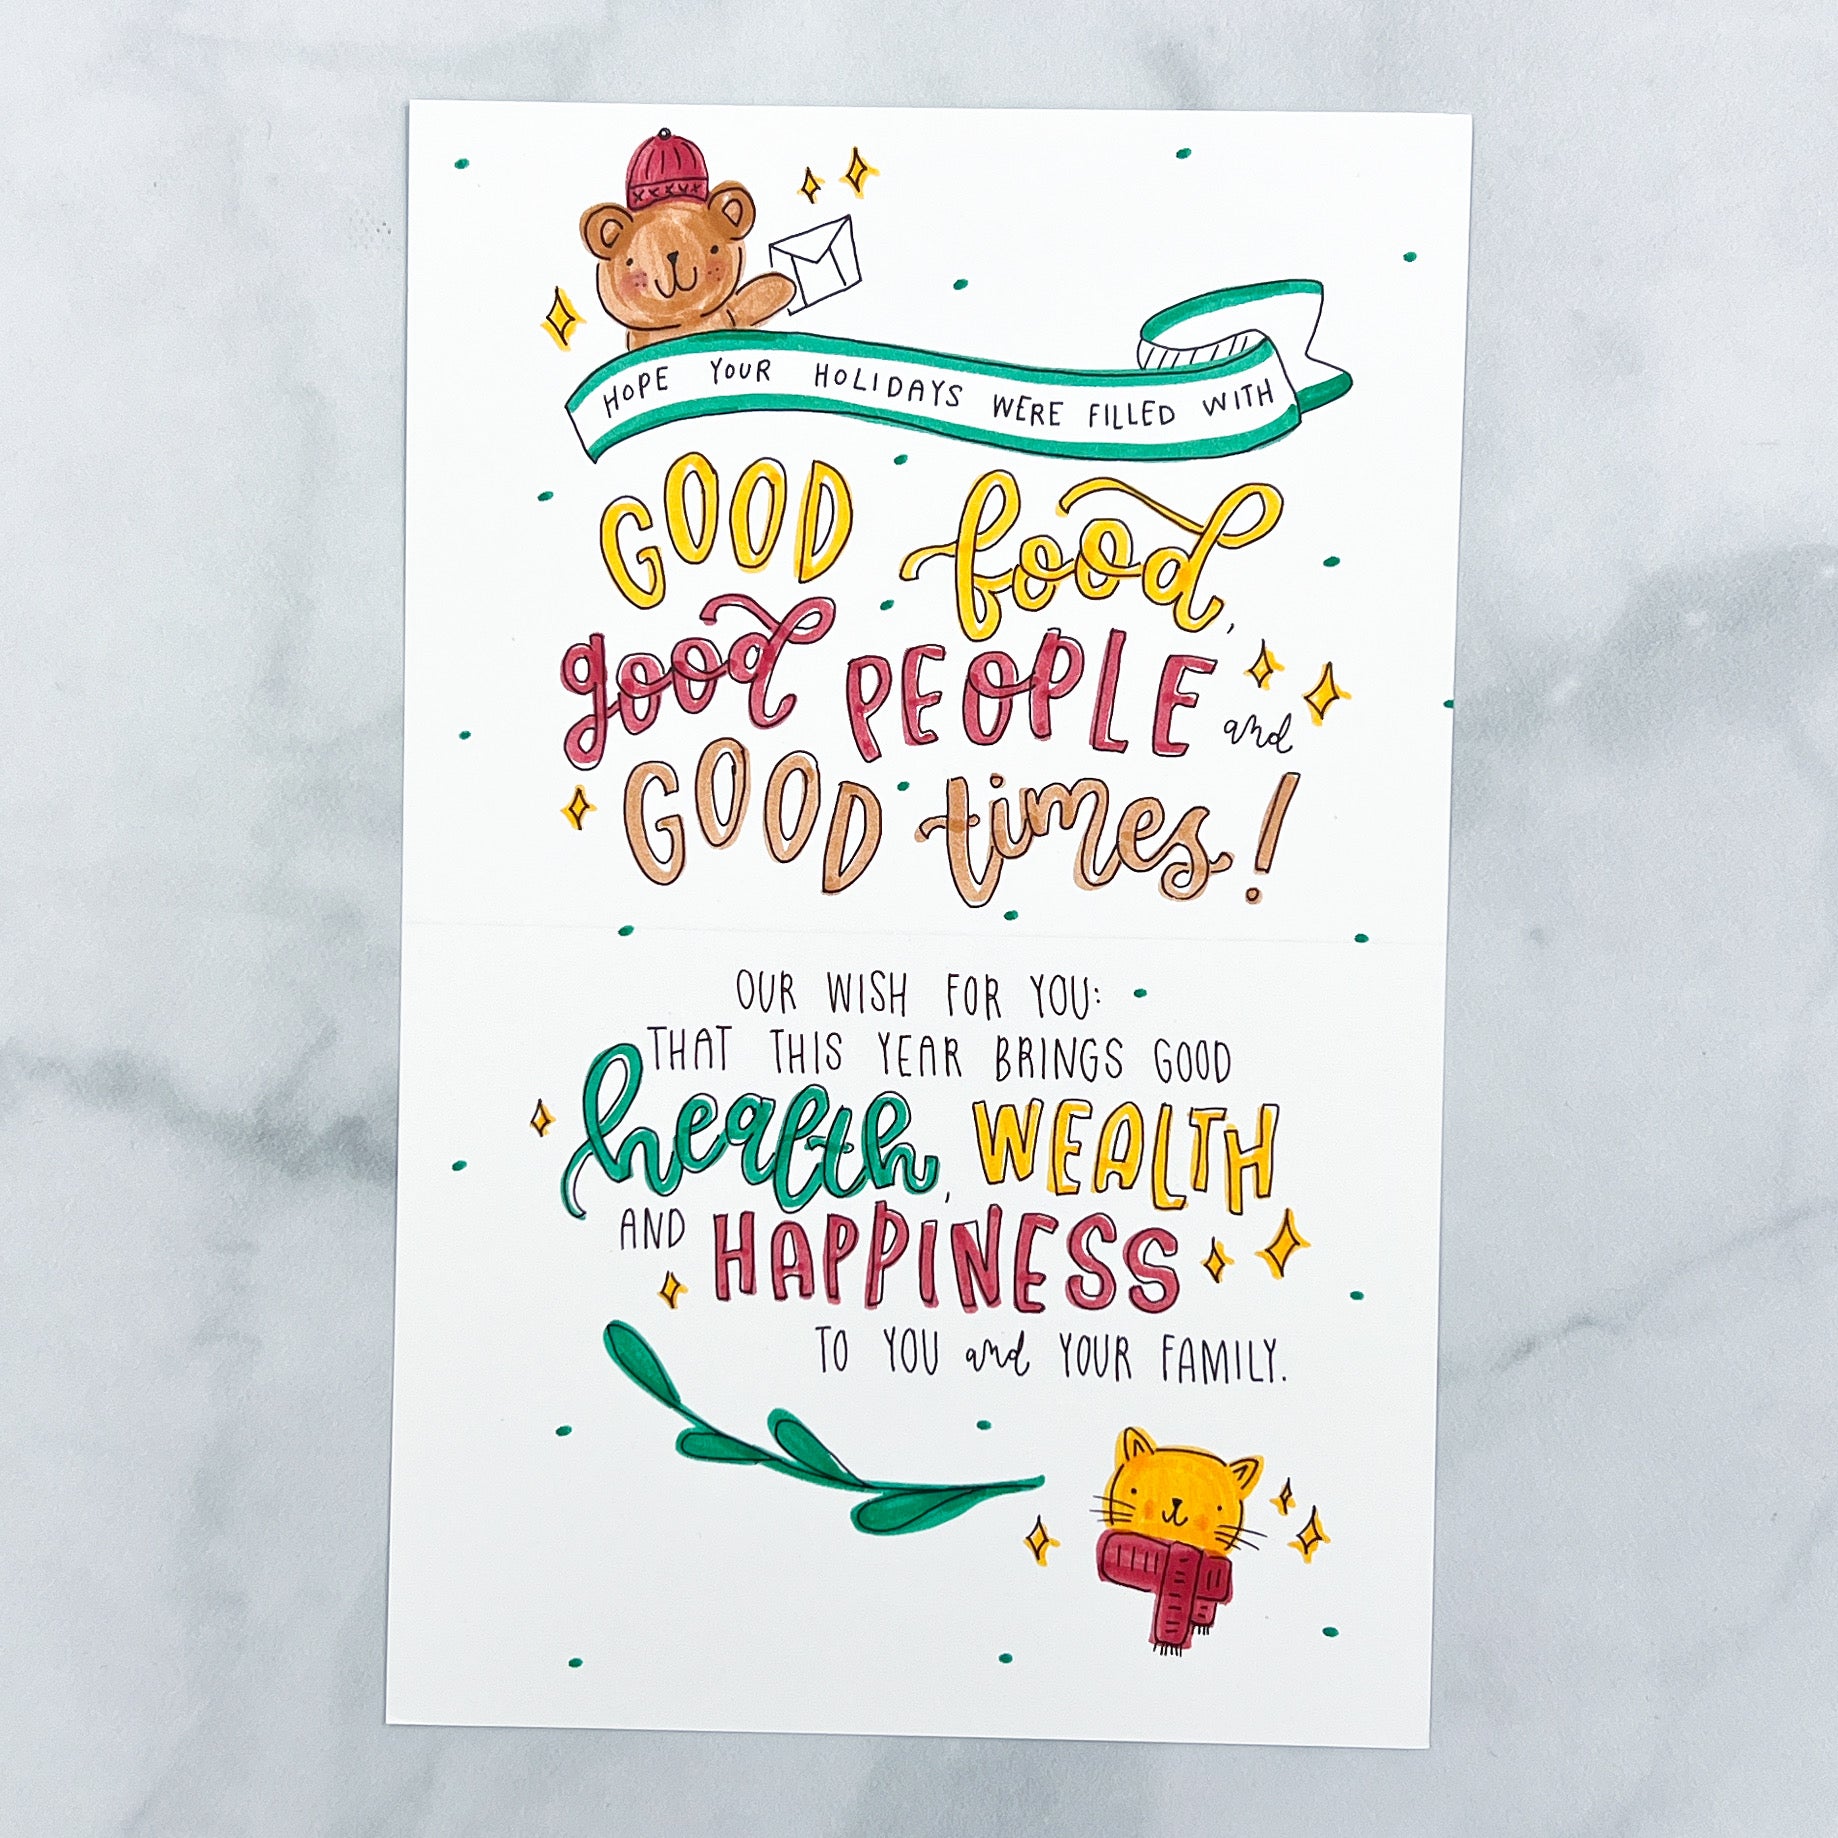 HOPE YOUR HOLIDAYS WERE FILLED WITH
GOOD food,
good PEOPLE and
GOOD times!
OUR WISH FOR YOU:
THAT THIS YEAR BRINGS GOOD
health, WEALTH
AND HAPPINESS
TO YOU and YOUR FAMILY.